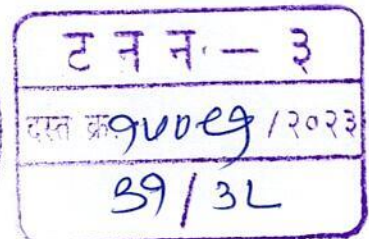 ट न न - ३
दस्त क्र १५०९१ /२०२३
३१ / ३८